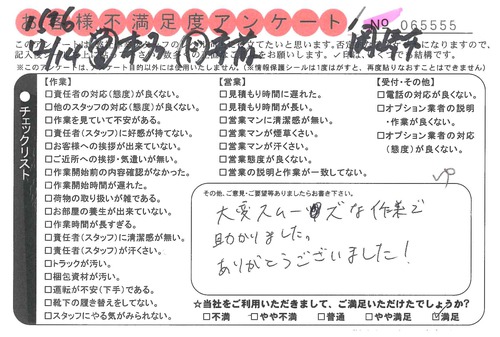 お客様不満足度アンケート
NO 065555
※このアンケートは、アンケート目的以外には使用いたしません。(※情報保護シールは1度はがすと、再度貼りなおすことはできません)
チェックリスト
【作業】
□責任者の対応(態度)が良くない。
□他のスタッフの対応(態度)が良くない。
□作業を見ていて不安がある。
□責任者(スタッフ)に好感が持てない。
□お客様への挨拶が出来ていない。
□ご近所への挨拶・気遣いが無い。
□作業開始前の内容確認がなかった。
□作業開始時間が遅れた。
□荷物の取り扱いが雑である。
□お部屋の養生が出来ていない。
□作業時間が長すぎる。
□責任者(スタッフ)に清潔感が無い。
□責任者(スタッフ)が汗くさい。
□トラックが汚い。
□梱包資材が汚い。
□運転が不安(下手)である。
□靴下の履き替えをしてない。
□スタッフにやる気がみられない。
【営業】
□見積もり時間に遅れた。
□見積もり時間が長い。
□営業マンに清潔感が無い。
□営業マンが煙草くさい。
□営業マンが汗くさい。
□営業態度が良くない。
□営業の説明と作業が一致してない。
【受付・その他】
□電話の対応が良くない。
□オプション業者の説明・作業が良くない。
□オプション業者の対応(態度)が良くない。
その他、ご意見・ご要望等ありましたらお書き下さい。
大変スムーズな作業で
助かりました。
ありがとうございました!
☆当社をご利用いただきまして、ご満足いただけたでしょうか?
□不満 □やや不満 □普通 □やや満足 ☑満足